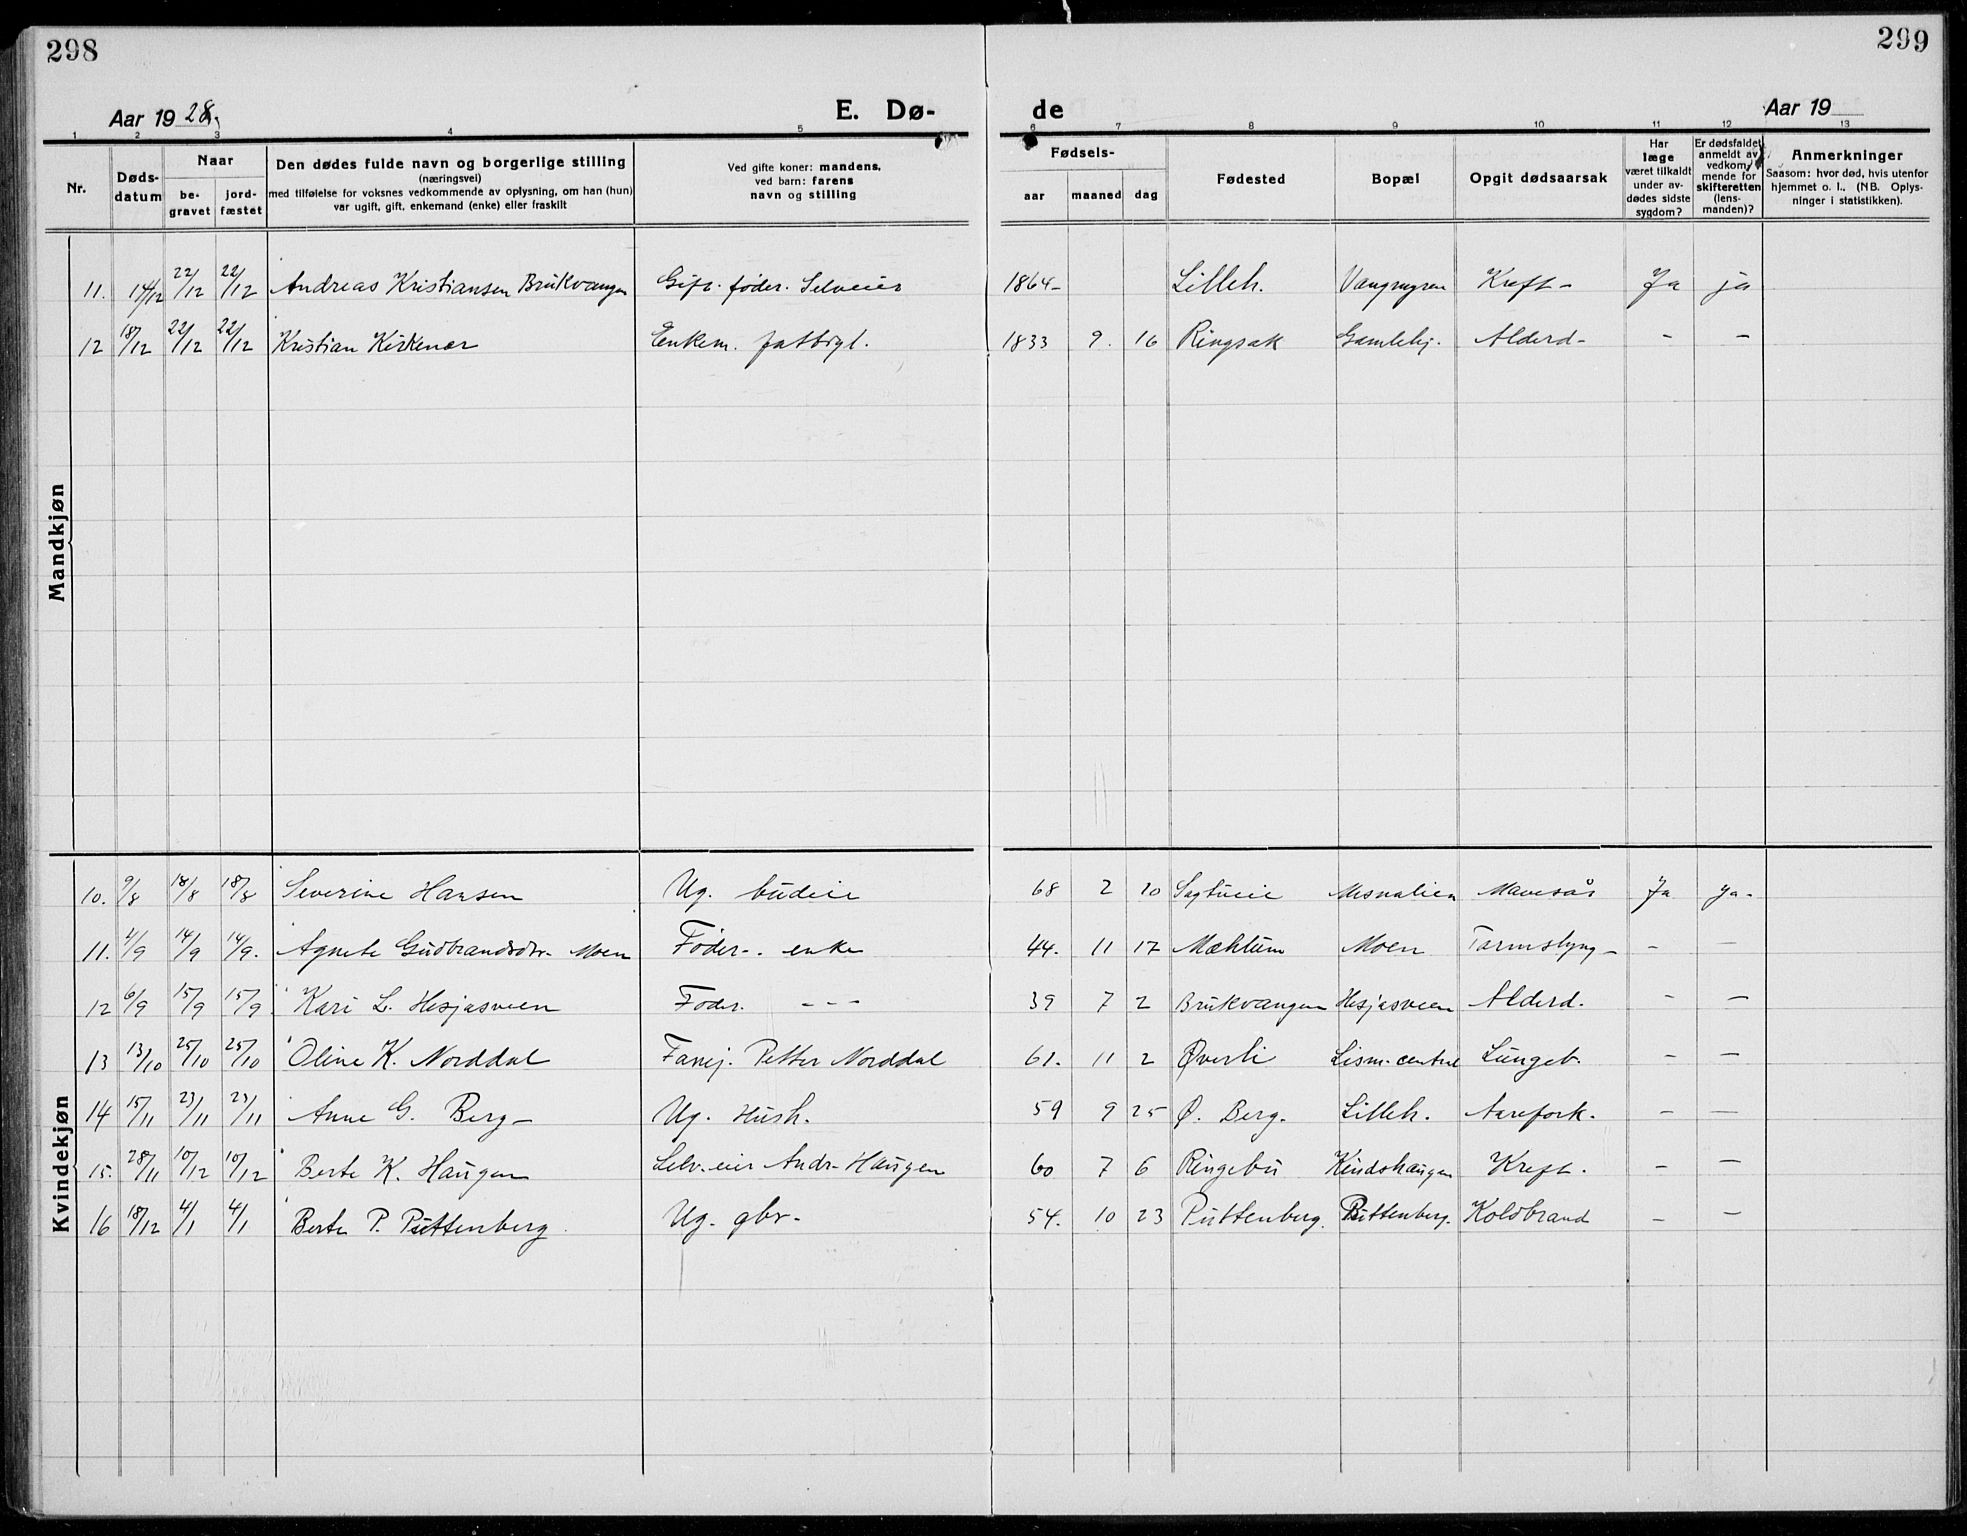 298
299
Aar 1928.
E. Dø-
de
Aar 19
1 2 3 4 5 6 7 8 9 10 11 12 13
Nr.
Døds-
datum
Naar
be-
gravet
jord-
fæstet
Den dødes fulde navn og borgerlige stilling
(næringsvei)
med tilføielse for voksnes vedkommende av oplysning, om han (hun)
var ugift, gift, enkemand (enke) eller fraskilt
Ved gifte koner: mandens,
ved barn: farens
navn og stilling
Fødsels-
aar maaned dag
Fødested
Bopæl
Opgit dødsaarsak
Har
læge
været tilkaldt
under av-
dødes sidste
sygdom?
Er dødsfaldet
anmeldt av
vedkom-
mende for
skifteretten
(lens-
manden)?
Anmerkninger
Saasom: hvor død, hvis utenfor
hjemmet o. l., (NB. Oplys-
ninger i statistikken).
Mandkjøn
11. 14/12 22/12 22/12 Andreas Kristiansen Brukvangen Gift. føder. Selveier 1864- Lilleh. Kreft- Ja ja
12 18/12 22/12 22/12 Kristian Kirkener Enkem. fattigl. 1833 9. 16 Ringsak Gamlehj. Alderd- - -
Kvindekjøn
10. 9/8 18/8 18/8 Severine Hansen Ug. budeie 68 2 20 Sagtueie Mesnalien Mavesår Ja Ja-
11. 14/9 14/9. Agnete Gudbrandsdtr- Moen Føder-. enke 44. 11 17 Mæhlum Moen Tarmslyng- - -
12 6/9 15/9 15/9 Kari L. Hesjasveen Føder. - - - 39 7 2 Brukvangen Hesjasveen Alderd. - -
13 13/10 25/10 25/10 Oline K. Norddal Petter Norddal 61. 11 2 Øverli Lism. central Lungeb. - -
14 15/11 23/11 23/11 Anne G. Berg- Ug. Hush. 59 9 25 Ø. Berg. Lilleh. Aarefork. - -
15. 28/11 10/12 10/12 Berte K. Haugen Selv.eier Andr- Haugen 60 7 6 Ringebu Kindshaugen Kreft. - -
16 18/12 4/1 4/1 Berte P. Puttenberg. Ug. gbr- 54. 10 23 Puttenberg. Puttenberg. Koldbrand - -